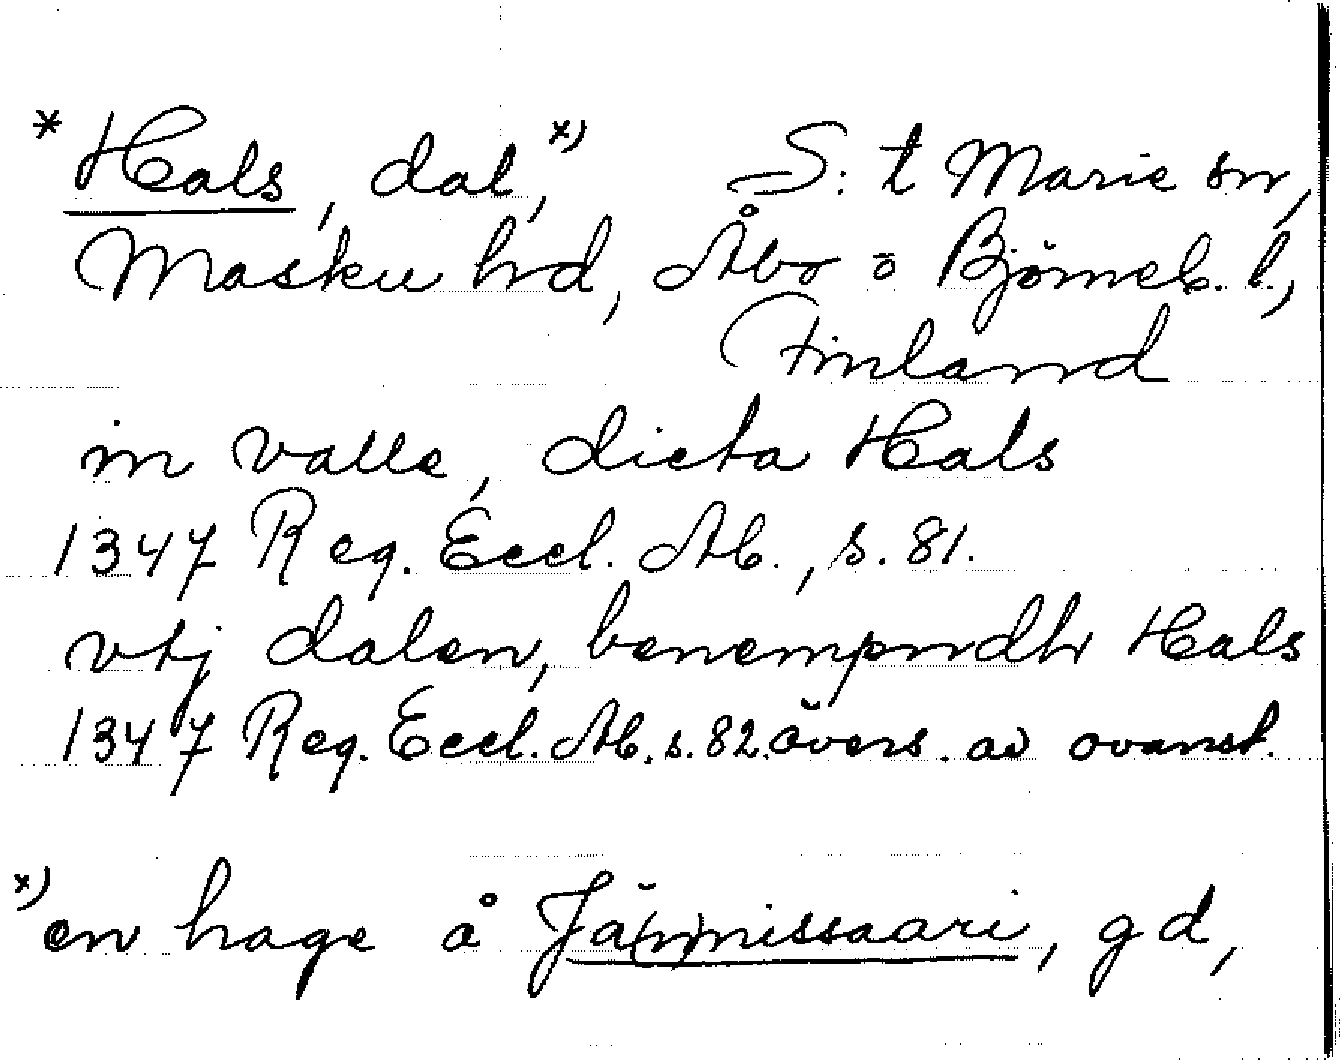 * Hals, dal,x) S:t Marie sn,
Masku hd, Åbo o Björneb. l.,
Finland
in valle, dicta Hals
1347 Reg. Eccl. Ab., s. 81.
vtj dalen, benempndh Hals
1347 Reg. Eccl. Ab. s. 82. övers. av ovanst.
x) en hage å Jä(n)nissaari, gd,